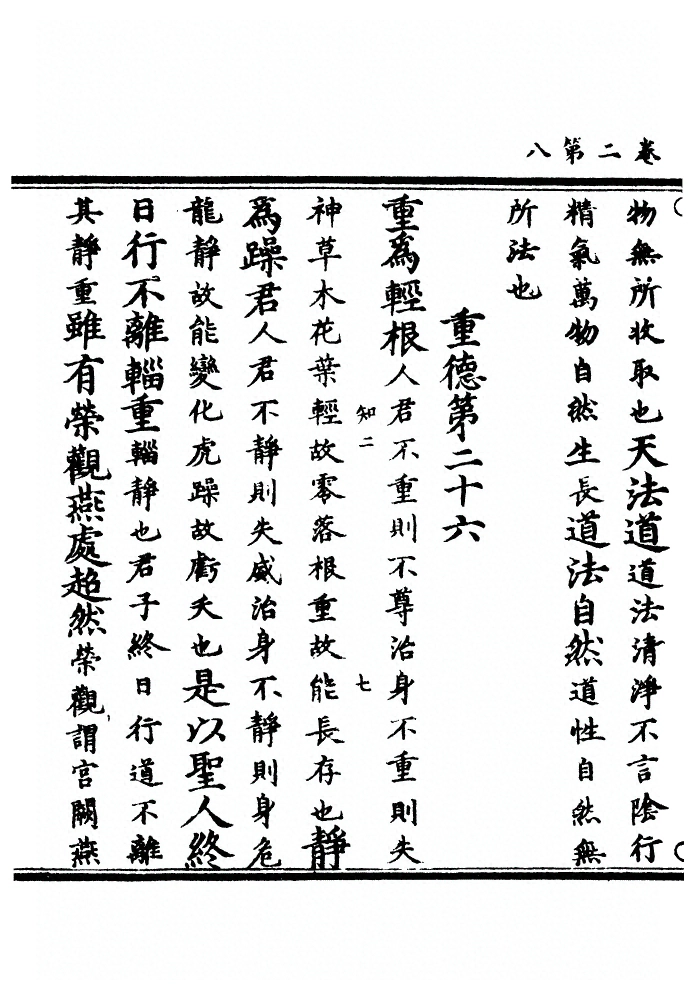 卷二第八
物無所收取也天法道道法清淨不言陰行
精氣萬物自然生長道法自然道性自然無
所法也
重德第二十六
重為輕根人君不重則不尊治身不重則失
知二
七
神草木花葉輕故零落根重故能長存也靜
為躁君人君不靜則失威治身不靜則身危
龍靜故能變化虎躁故虧夭也是以聖人終
日行不離輜重輜靜也君子終日行道不離
其靜重雖有榮觀燕處超然榮觀謂宮闕燕